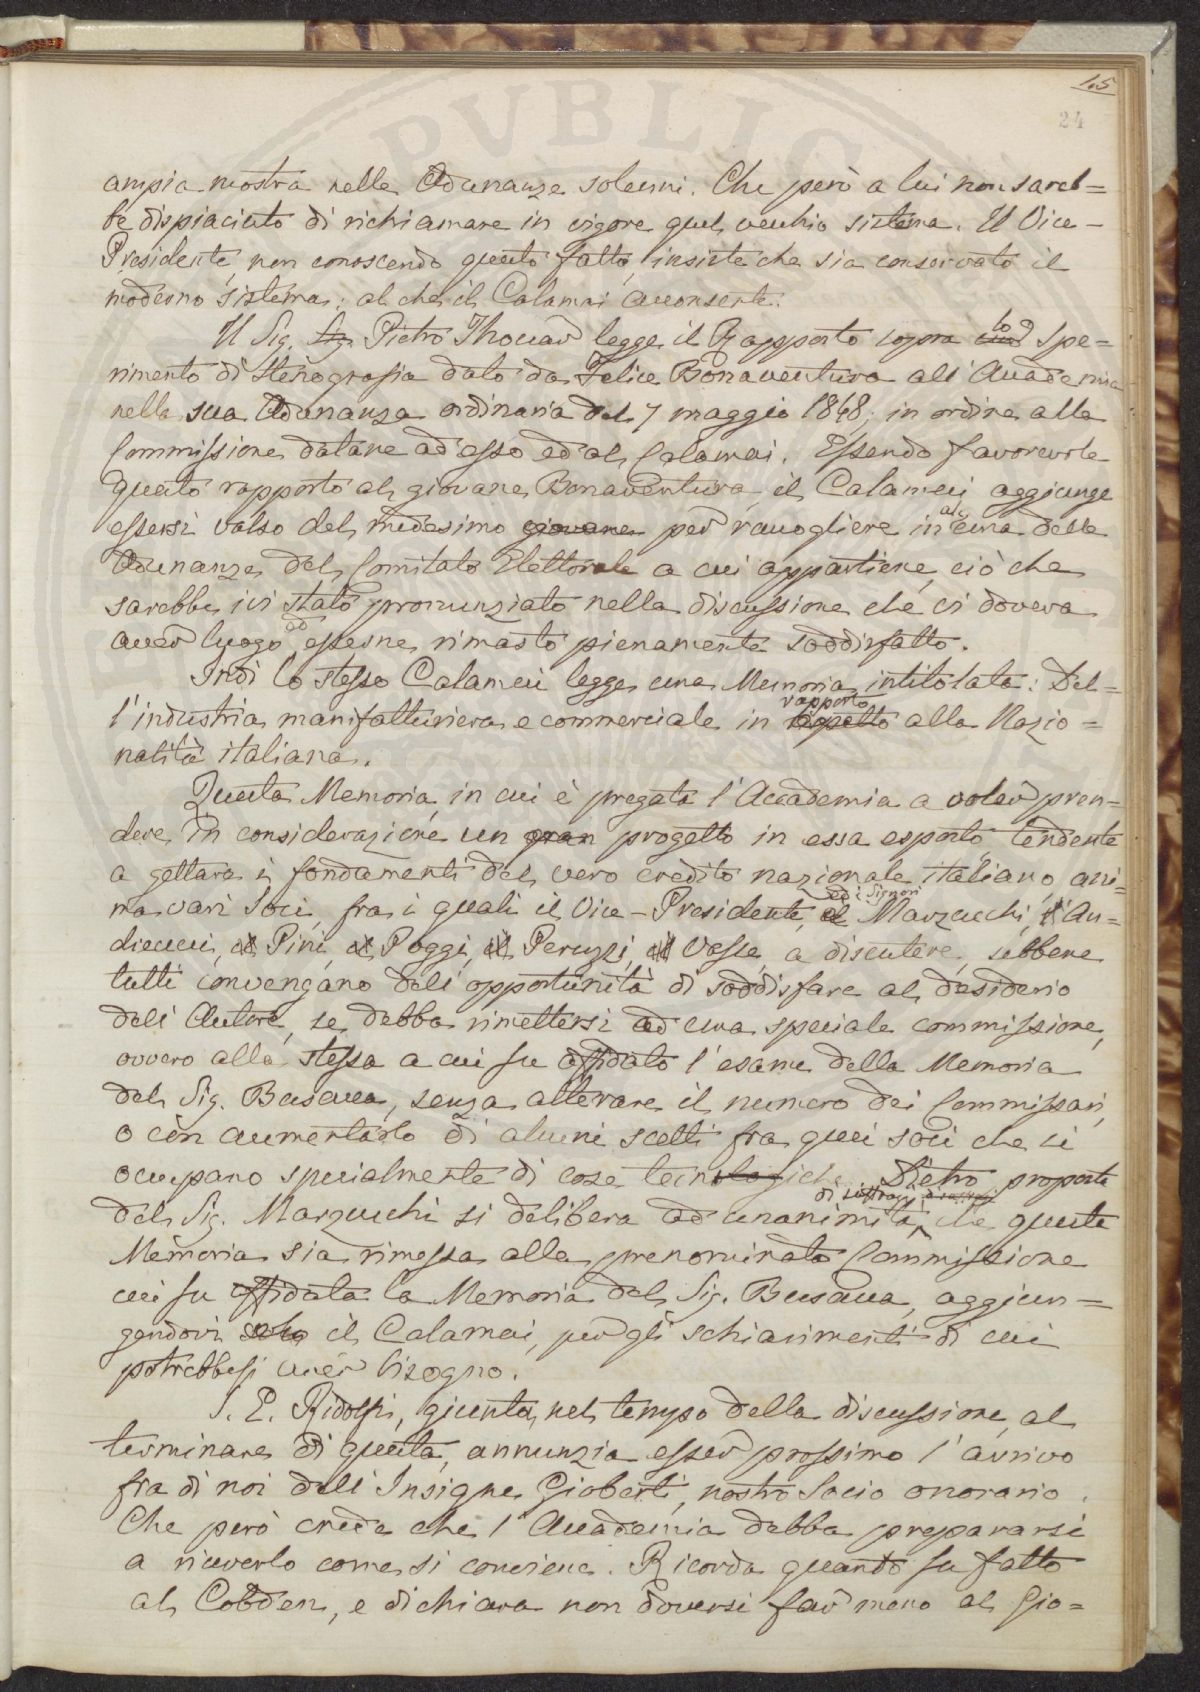 15
24
ampia mostra nelle Adunanze solenni. Che però a lui non sareb=
be dispiaciuto di richiamare in vigore quel vecchio sistema. Il Vice-
Presidente, non conoscendo questo fatto, insiste che sia conservato il
moderno sistema; al che il Calamai acconsente.
Il Sig. Sig. Pietro Thouar legge il Rapporto sopra lo spe=
rimento di Stenografia dato da Felice Bonaventura all'Accademia
nella sua Adunanza ordinaria del 7 maggio 1848, in ordine alla
Commissione datane ad esso ed al Calamai. Essendo favorevole
questo rapporto al giovane Bonaventura, il Calamai aggiunge
essersi valso del medesimo giovane per raccogliere in alcuna delle
Adunanze del Comitato Elettorale a cui appartiene, ciò che
sarebbe ivi stato pronunziato nella discussione che vi doveva
aver luogo, ed esserne rimasto pienamente soddisfatto.
Indi lo stesso Calamai legge una Memoria intitolata: Del=
rapporto
l'industria manifatturiera e commerciale in rispetto alla Nazio=
nalità italiana.
Questa Memoria, in cui è pregata l'Accademia a voler pren=
dere in considerazione un gran progetto in essa esposto, tendente
a gettare i fondamenti del vero credito nazionale italiano, ani=
ed i Signori
ma vari Soci, fra i quali il Vice-Presidente, il Marzucchi, l'An=
dreucci, il Pini, il Poggi, il Peruzzi, il Vasse, a discutere, sebbene
tutti convengano dell'opportunità di soddisfare al desiderio
dell'Autore, se debba rimettersi ad una speciale commissione,
ovvero alla stessa a cui fu affidato l'esame della Memoria
del Sig. Busacca, senza alterare il numero dei Commissari,
o con aumentarlo di alcuni scelti fra quei soci che si
occupano specialmente di cose tecnologiche. Dietro proposta
di suffragi
del Sig. Marzucchi si delibera ad unanimità, che questa
Memoria sia rimessa alla prenominata Commissione
cui fu affidata la Memoria del Sig. Busacca, aggiun=
gendovi solo il Calamai, per gli schiarimenti di cui
potrebbesi aver bisogno.
S. E. Ridolfi, giunto nel tempo della discussione, al
terminare di questa, annunzia esser prossimo l'arrivo
fra di noi dell'Insigne Gioberti, nostro Socio onorario.
Che però crede che l'Accademia debba prepararsi
a riceverlo come si conviene. Ricorda quanto fu fatto
al Cobden, e dichiara non doversi far meno al Gio=